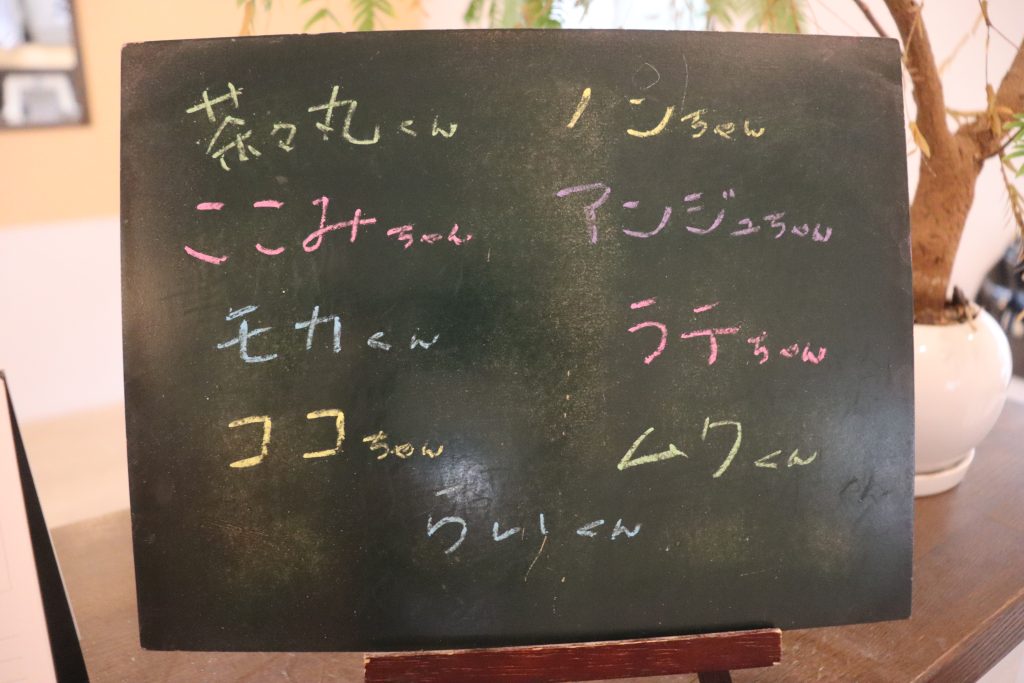 茶々丸くん ノンちゃん
ここみちゃん アンジュちゃん
モカくん ラテちゃん
ココちゃん ムクくん
らいくん